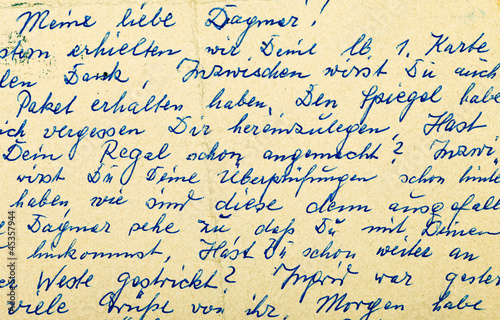 Meine liebe Dagmar!
stern erhielten wir Deine lb 1. Karte
len Dank, Inzwischen wirst Du auch
Paket erhalten haben, Den Spiegel habe
ich vergessen Dir hereinzulegen, Hast
Dein Regal schon angemacht? Inzwi
wirst Du Deine Überprüfungen schon hinte
haben wie sind diese denn ausgefall
Dagmar sehe zu daß Du mit Deinen
hinkommst, Hast Du schon weiter an
e Weste gestrickt? Ingrid war geste
viele Grüße von ihr, Morgen habe
Adobe Stock | #45357944